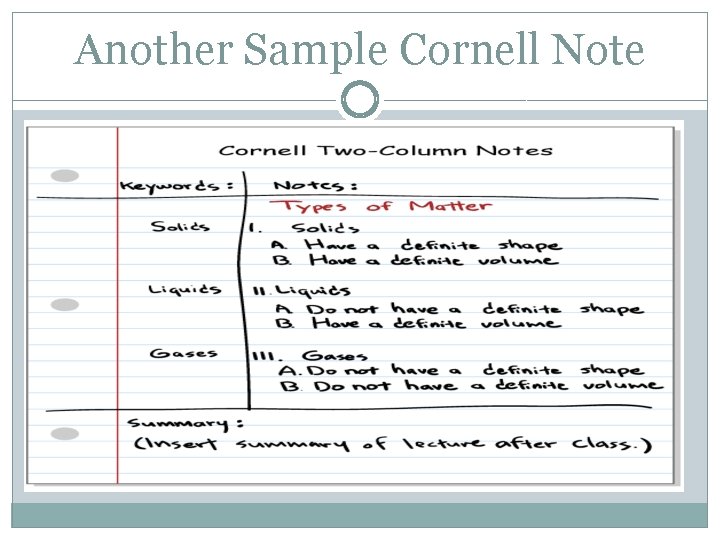 Another Sample Cornell Note
Cornell Two-Column Notes
Keywords: Notes:
Types of Matter
Solids I. Solids
A. Have a definite shape
B. Have a definite volume
Liquids II. Liquids
A. Do not have a definite shape
B. Have a definite volume
Gases III. Gases
A. Do not have a definite shape
B. Do not have a definite volume
Summary:
(Insert summary of lecture after class.)